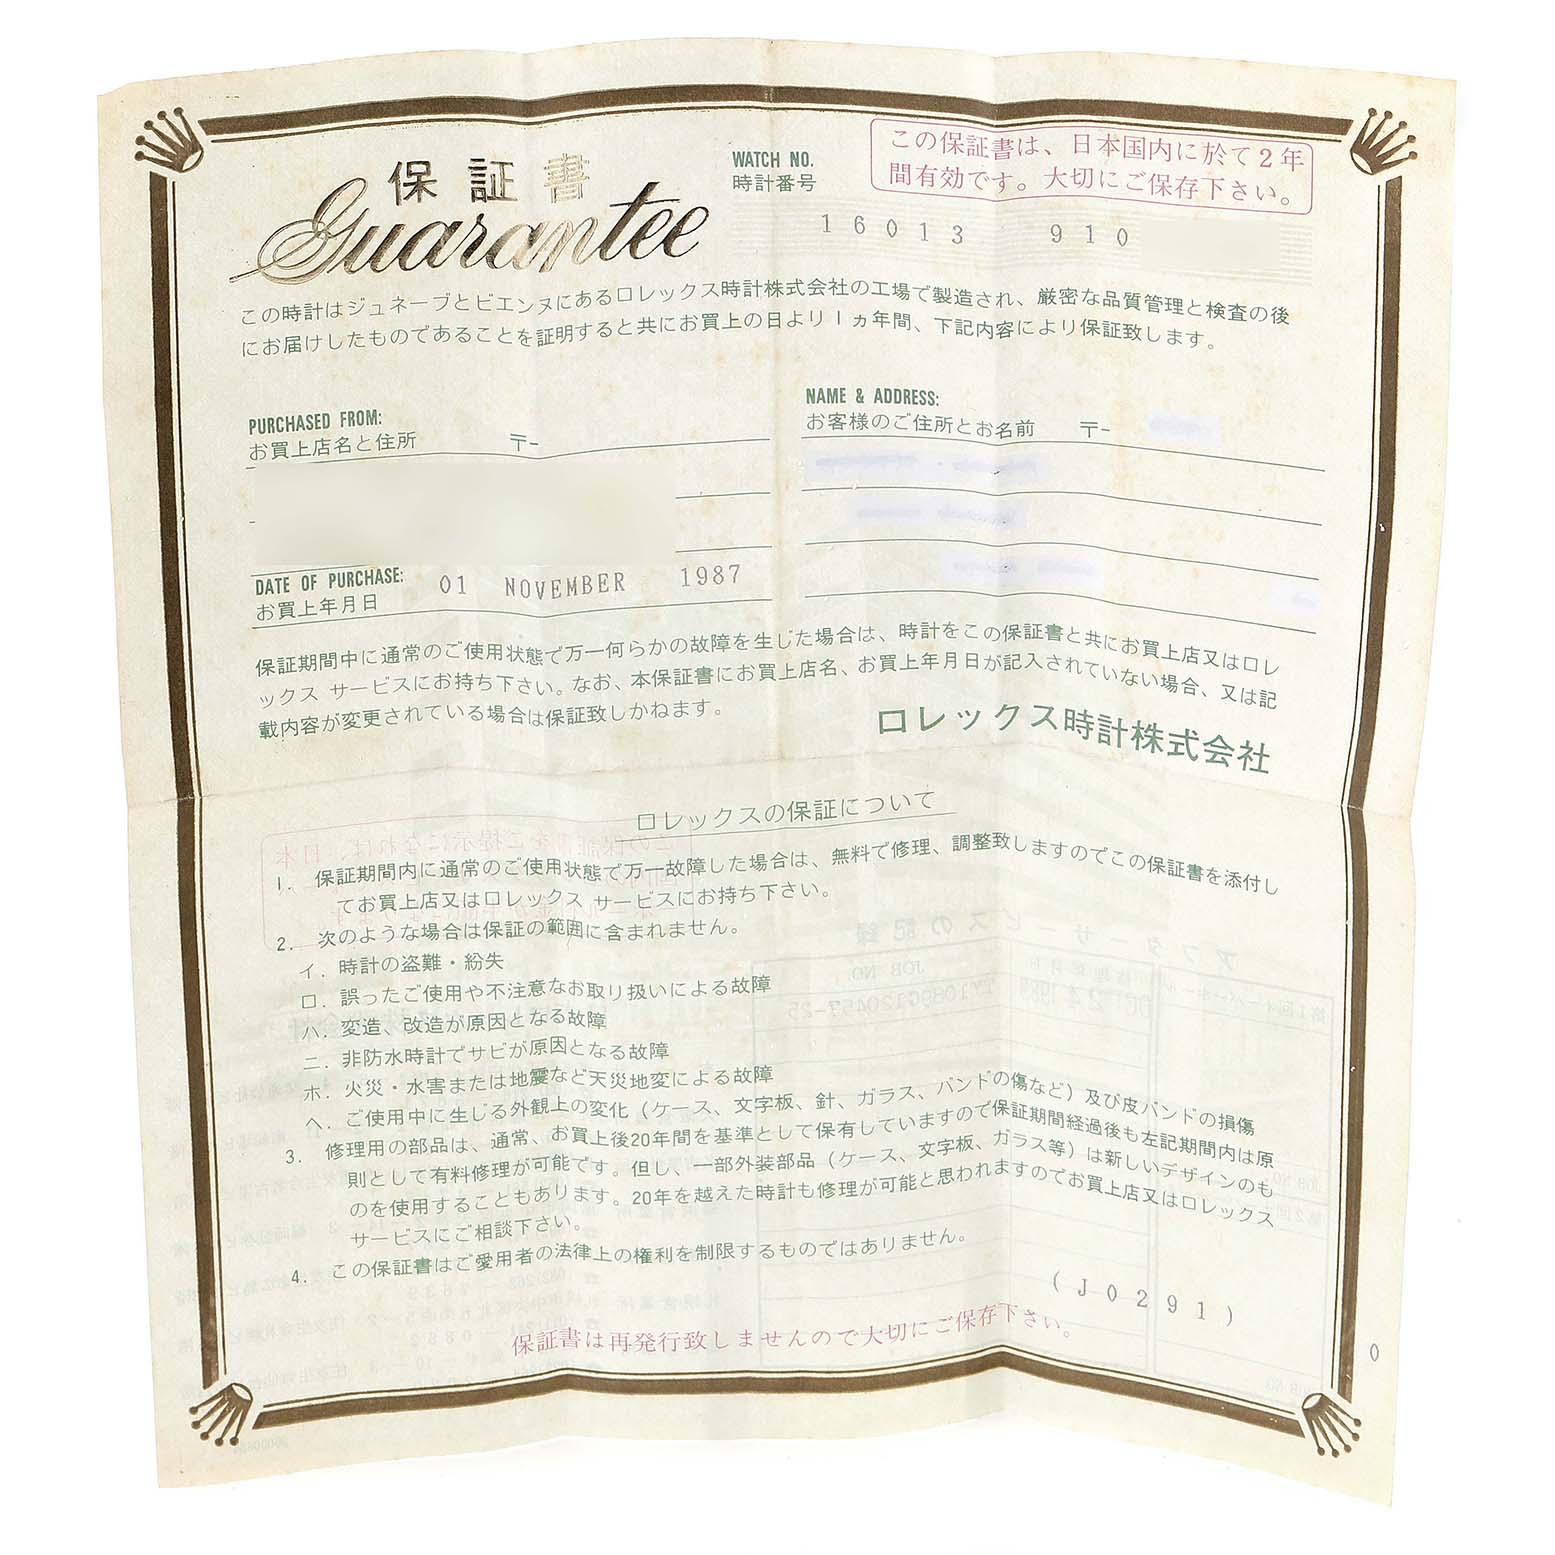 保証書
Guarantee
WATCH NO.
時計番号
この保証書は、日本国内に於て2年
間有効です。大切にご保存下さい。
16013 910
この時計はジュネーブとビエンヌにあるロレックス時計株式会社の工場で製造され、厳密な品質管理と検査の後
にお届けしたものであることを証明すると共にお買上の日より1ヵ年間、下記内容により保証致します。
PURCHASED FROM:
お買上店名と住所 〒-
NAME & ADDRESS:
お客様のご住所とお名前 〒-
DATE OF PURCHASE: 01 NOVEMBER 1987
お買上年月日
保証期間中に通常のご使用状態で万一何らかの故障を生じた場合は、時計をこの保証書と共にお買上店又はロレ
ックス サービスにお持ち下さい。なお、本保証書にお買上店名、お買上年月日が記入されていない場合、又は記
載内容が変更されている場合は保証致しかねます。
ロレックス時計株式会社
ロレックスの保証について
1. 保証期間内に通常のご使用状態で万一故障した場合は、無料で修理、調整致しますのでこの保証書を添付し
てお買上店又はロレックス サービスにお持ち下さい。
2. 次のような場合は保証の範囲に含まれません。
イ. 時計の盗難・紛失
ロ. 誤ったご使用や不注意なお取り扱いによる故障
ハ. 変造、改造が原因となる故障
ニ. 非防水時計でサビが原因となる故障
ホ. 火災・水害または地震など天災地変による故障
ヘ. ご使用中に生じる外観上の変化(ケース、文字板、針、ガラス、バンドの傷など)及び皮バンドの損傷
3. 修理用の部品は、通常、お買上後20年間を基準として保有していますので保証期間経過後も左記期間内は原
則として有料修理が可能です。但し、一部外装部品(ケース、文字板、ガラス等)は新しいデザインのも
のを使用することもあります。20年を越えた時計も修理が可能と思われますのでお買上店又はロレックス
サービスにご相談下さい。
4. この保証書はご愛用者の法律上の権利を制限するものではありません。
(J0291)
保証書は再発行致しませんので大切にご保存下さい。
0